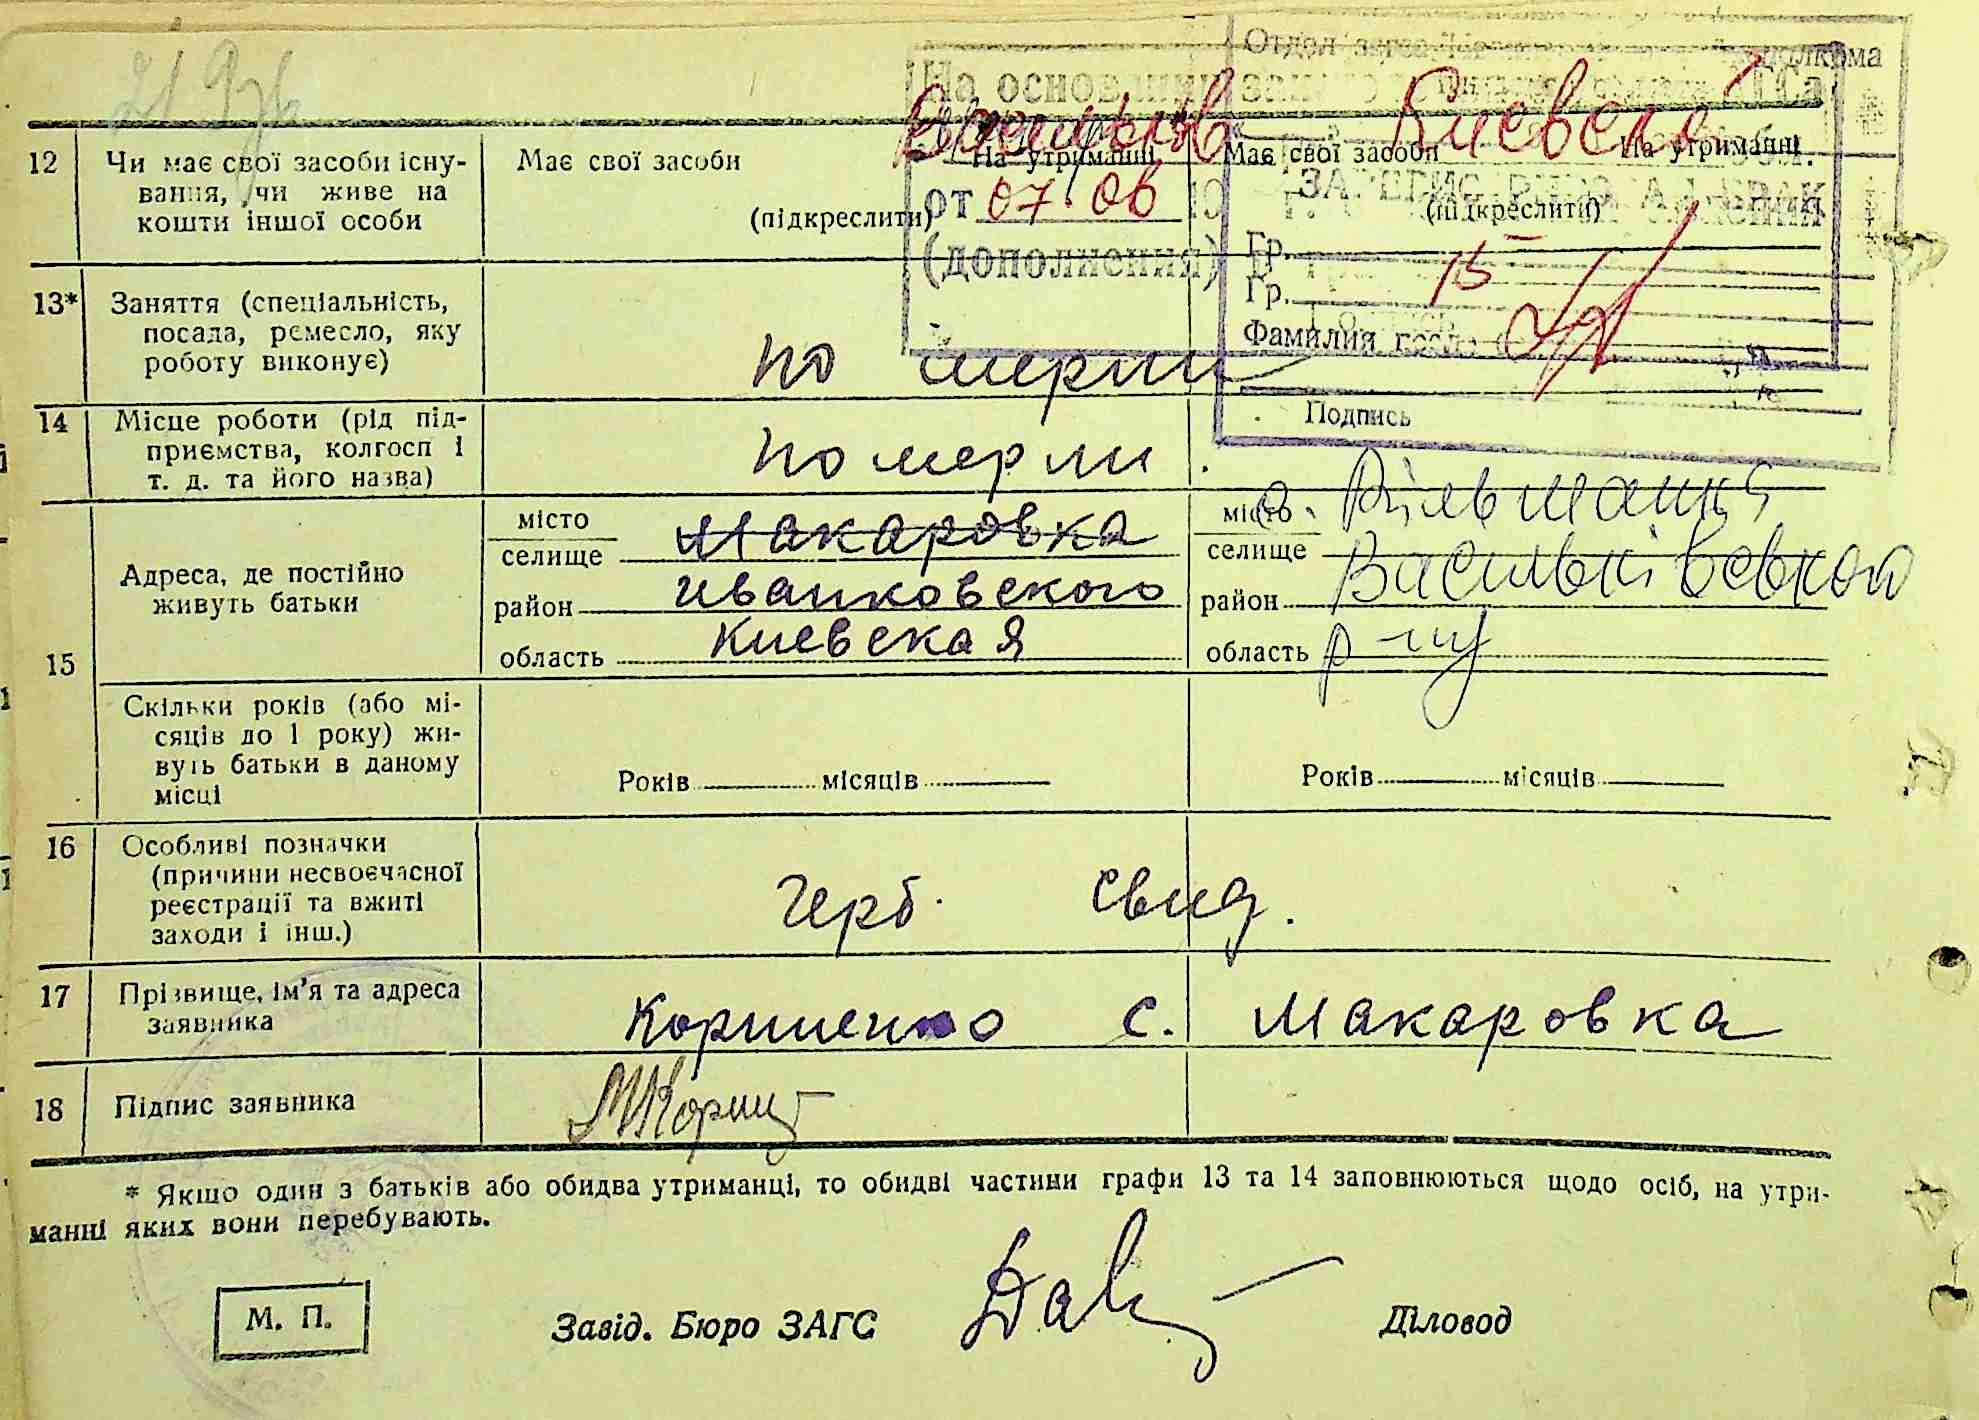 Отдел
На основании
Васильков Киевской
12 Чи має свої засоби існу- Має свої засоби На утриманні Має свої засоби На утриманні
вання, чи живе на
кошти іншої особи (підкреслити) (підкреслити)
от 07 06 19
(дополнения)
Гр.
Гр. 15
Фамилия
Подпись
13* Заняття (спеціальність,
посада, ремесло, яку
роботу виконує) по мерли
14 Місце роботи (рід під-
приємства, колгосп і
т. д. та його назва) по мерли
15 Адреса, де постійно
живуть батьки
місто Макаровка місто с. Вільшанка
селище селище
район Иванковского район Васильківського
область Киевская область р-ну
Скільки років (або мі-
сяців до 1 року) жи-
вуть батьки в даному
місці
Років місяців Років місяців
16 Особливі позначки
(причини несвоєчасної
реєстрації та вжиті
заходи і інш.)
герб. свид.
17 Прізвище, ім'я та адреса
заявника
Коршенко с. Макаровка
18 Підпис заявника
* Якщо один з батьків або обидва утриманці, то обидві частини графи 13 та 14 заповнюються щодо осіб, на утри-
манні яких вони перебувають.
М. П. Завід. Бюро ЗАГС Діловод